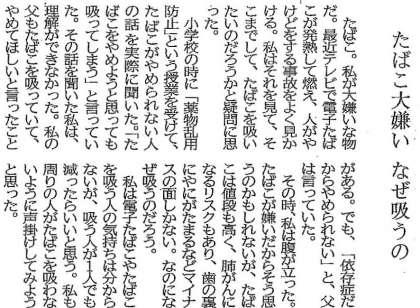 たばこ大嫌い なぜ吸うの
たばこ。私が大嫌いな物
だ。最近テレビで電子たば
こが発熱して燃え、人がや
けどをする事故をよく見か
ける。私はそれを見て、そ
こまでして、たばこを吸い
たいのだろうかと疑問に思
った。
小学校の時に「薬物乱用
防止」という授業を受けて、
たばこがやめられない人
の話を実際に聞いた。「た
ばこをやめようと思っても
吸ってしまう」と言ってい
た。その話を聞いた私は、
理解ができなかった。私の
父もたばこを吸っていて、
やめてほしいと言ったこと
がある。でも、「依存症だ
からやめられない」と、父
は言っていた。
その時、私は腹が立った。
たばこが嫌いだからそう思
うのかもしれないが、たば
こは値段も高く、肺がんに
なるリスクもあり、歯の裏
にやにがたまるなどマイナ
スの面しかない。なのにな
ぜ吸うのだろう。
私は電子たばこやたばこ
を吸う人の気持ちは分から
ないが、吸う人が1人でも
減ったらいいと思う。私も
周りの人がたばこを吸わな
いように声掛けしてみよう
と思った。